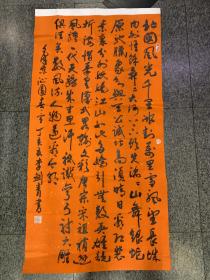 北國風光千里冰封萬里雪飄望長城
内外惟餘莽莽大河上下頓失滔滔山舞銀蛇
原馳蠟象欲與天公試比高須晴日看紅裝
素裹分外妖嬈江山如此多嬌引無數英雄競
折腰惜秦皇漢武略輸文彩唐宗宋祖稍遜
風騷一代天驕成吉思汗祇識彎弓射大雕
俱往矣數風流人物還看今朝
毛澤東沁園春雪丁亥